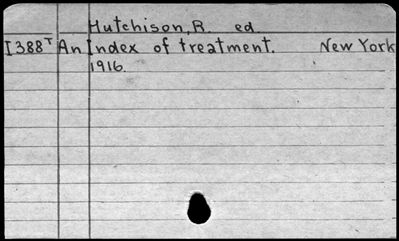 Hutchison, R. ed
I388T An Index of treatment. New York
1916.